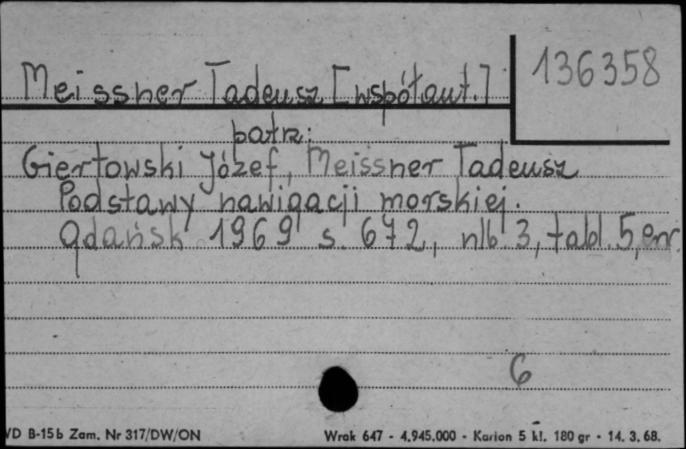 Meissner Tadeusz [współaut.]
136358
patrz:
Giertowski Józef, Meissner Tadeusz
Podstawy nawigacji morskiej.
Gdańsk 1969 s. 672, nlb. 3, tabl. 5, err.
6
VD B-15b Zam. Nr 317/DW/ON
Wrak 647 - 4.945.000 - Karton 5 kl. 180 gr - 14. 3. 68.